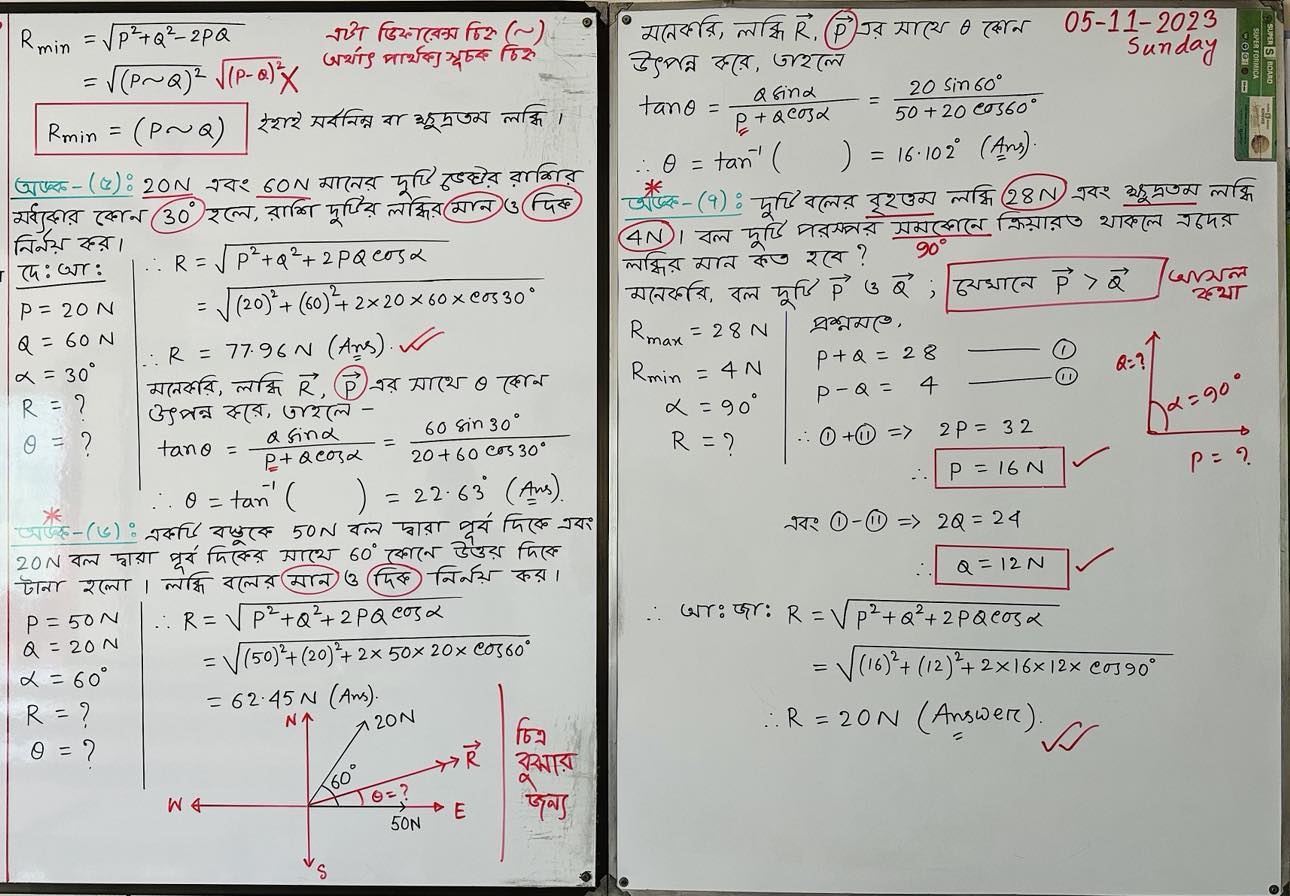 R min = √P²+Q²-2PQ
= √(P~Q)² √(P-Q)² X
এটা ডিফারেন্স চিহ্ন (~)
অর্থাৎ পার্থক্য সূচক চিহ্ন
R min = (P~Q)
ইহাই সর্বনিম্ন বা ক্ষুদ্রতম লব্ধি।
অঙ্ক-(৫): 20N এবং 60N মানের দুটি ভেক্টর রাশির
মধ্যকার কোন 30° হলে, রাশি দুটির লব্ধির মান ও দিক
নির্নয় কর।
দে: আ:
P = 20 N
Q = 60 N
α = 30°
R = ?
θ = ?
∴ R = √P²+Q²+2PQ cosα
= √(20)²+(60)²+2×20×60×cos30°
∴ R = 77.96 N (Ans).
মনেকরি, লব্ধি R⃗, P⃗ এর সাথে θ কোন
উৎপন্ন করে, তাহলে –
tanθ = Q sinα / P + Q cosα = 60 sin 30° / 20+60 cos30°
∴ θ = tan⁻¹ (      ) = 22.63° (Ans).
অঙ্ক-(৬): একটি বস্তুকে 50N বল দ্বারা পূর্ব দিকে এবং
20N বল দ্বারা পূর্ব দিকের সাথে 60° কোনে উত্তর দিকে
টানা হলো। লব্ধি বলের মান ও দিক নির্নয় কর।
P = 50 N
Q = 20 N
α = 60°
R = ?
θ = ?
∴ R = √P²+Q²+2PQ cosα
= √(50)²+(20)²+2×50×20×cos60°
= 62.45 N (Ans).
N
20N
R⃗
60°
θ=?
W
E
50N
S
চিত্র
বুঝার
জন্য
মনেকরি, লব্ধি R⃗, P⃗ এর সাথে θ কোন
উৎপন্ন করে, তাহলে
05-11-2023
Sunday
tanθ = Q sinα / P + Q cosα = 20 sin60° / 50+20 cos60°
∴ θ = tan⁻¹ (      ) = 16.102° (Ans).
অঙ্ক-(৭): দুটি বলের বৃহত্তম লব্ধি 28N এবং ক্ষুদ্রতম লব্ধি
4N। বল দুটি পরস্পর সমকোনে ক্রিয়ারত থাকলে এদের
90°
লব্ধির মান কত হবে?
মনেকরি, বল দুটি P⃗ ও Q⃗ ; যেখানে P⃗ > Q⃗
আসল
কথা
R max = 28 N
R min = 4N
α = 90°
R = ?
প্রশ্নমতে,
P+Q = 28 —— (i)
P-Q = 4 —— (ii)
∴ (i)+(ii) => 2P = 32
∴ P = 16 N
এবং (i)-(ii) => 2Q = 24
∴ Q = 12 N
Q=?
α=90°
P = ?
∴ আ: জা: R = √P²+Q²+2PQ cosα
= √(16)²+(12)²+2×16×12×cos90°
∴ R = 20 N (Answer).
SUPER S BOARD
SUPER FORMICA